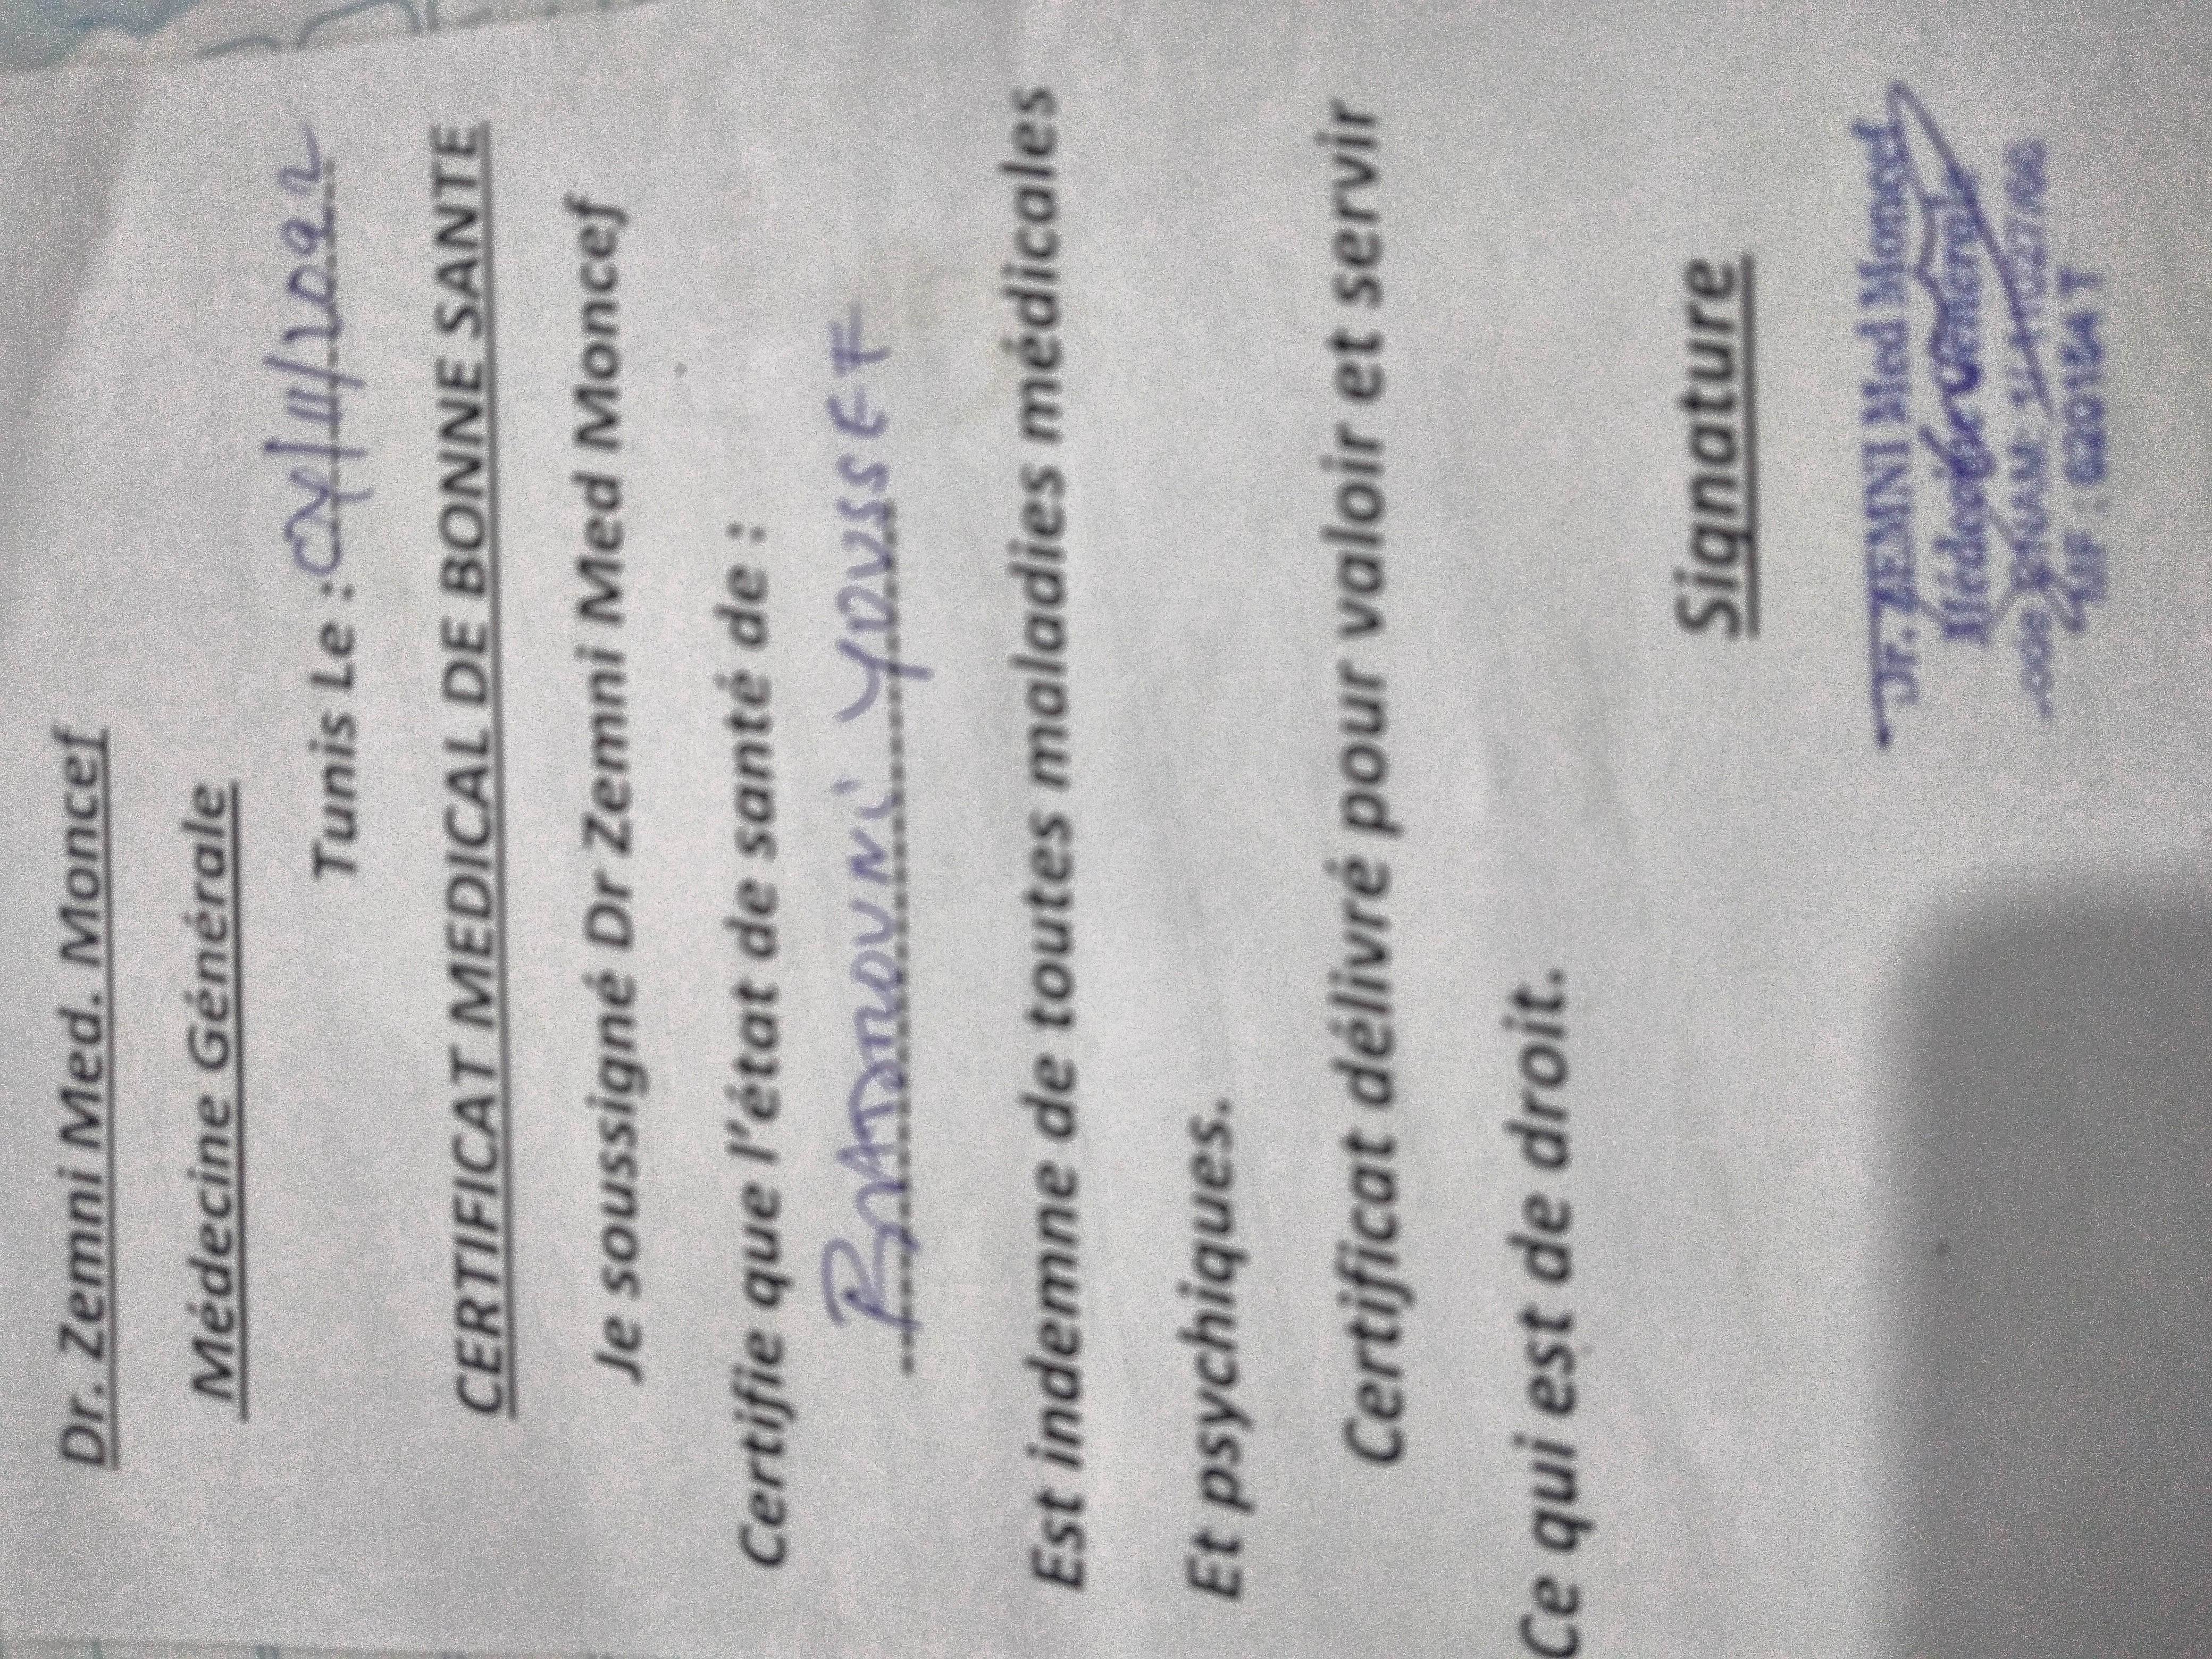 Dr. Zemni Med. Moncef
Médecine Générale
Tunis Le : /11/2022
CERTIFICAT MEDICAL DE BONNE SANTE
Je soussigné Dr Zemni Med Moncef
Certifie que l'état de santé de :
YOUSSEF
Est indemne de toutes maladies médicales
Et psychiques.
Certificat délivré pour valoir et servir
Ce qui est de droit.
Signature
Dr. ZEMNI Med Moncef